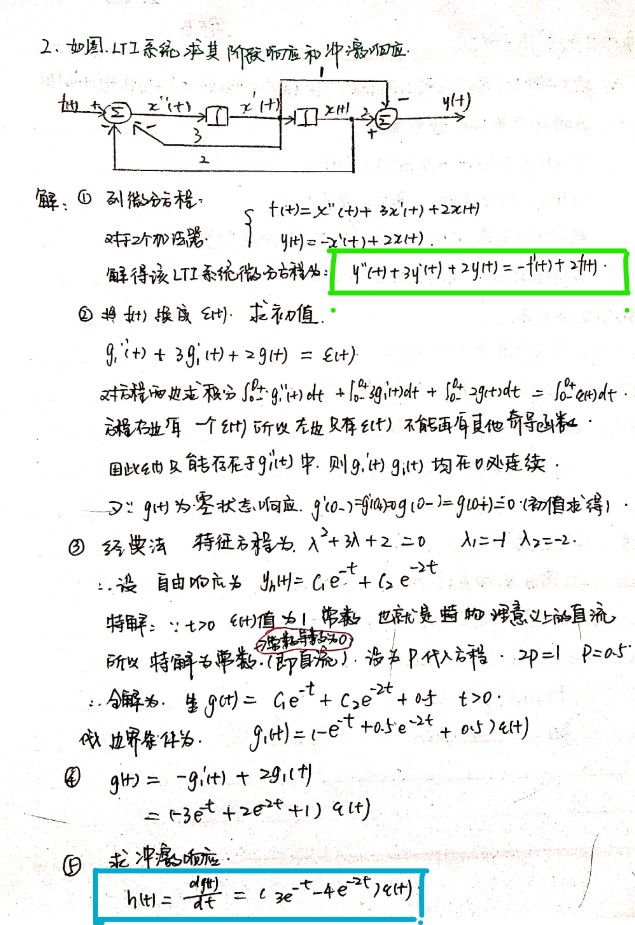 2、如图.LTI系统求其阶跃响应和冲激响应.
1
f(t) + Σ x''(t) ∫ x'(t) ∫ x(t) 2 + Σ − y(t)
− −
3
2
解: ① 列微分方程:
f(t)=x''(t)+3x'(t)+2x(t)
对于2个加法器.
y(t)=-x'(t)+2x(t).
解得该LTI系统微分方程为: y''(t)+3y'(t)+2y(t)=-f'(t)+2f(t).
② 将f(t)换成ε(t). 求初值.
g₁''(t)+3g₁'(t)+2g(t)=ε(t).
对方程两边求积分∫₀₋⁰⁺g₁''(t)dt+∫₀₋⁰⁺3g₁'(t)dt+∫₀₋⁰⁺2g(t)dt=∫₀₋⁰⁺ε(t)dt.
方程右边有一个ε(t)所以左边只有ε(t)不能再有其他奇导函数.
因此ε(t)只能存在于g₁''(t)中.则g₁'(t) g₁(t)均在0处连续.
又∵g(t)为零状态响应. g'(0-)=g'(0+)=0 g(0-)=g(0+)=0(初值求得).
③ 经典法 特征方程为. λ²+3λ+2=0 λ₁=-1 λ₂=-2.
∴设 自由响应为 yₕ(t)=C₁e^{-t}+C₂e^{-2t}
特解: ∵t>0 ε(t)值为1 常数 也就是 物理意义上的直流
→常数导数为0
所以 特解为常数.(即直流). 设为P代入方程. 2P=1 P=0.5
∴全解为. g(t)=C₁e^{-t}+C₂e^{-2t}+0.5 t>0.
代边界条件为. g₁(t)=(-e^{-t}+0.5e^{-2t}+0.5)ε(t)
④ g(t)=-g₁'(t)+2g₁(t)
=(-3e^{-t}+2e^{-2t}+1)ε(t)
⑤ 求冲激响应.
h(t)=dg(t)/dt=(3e^{-t}-4e^{-2t})ε(t).